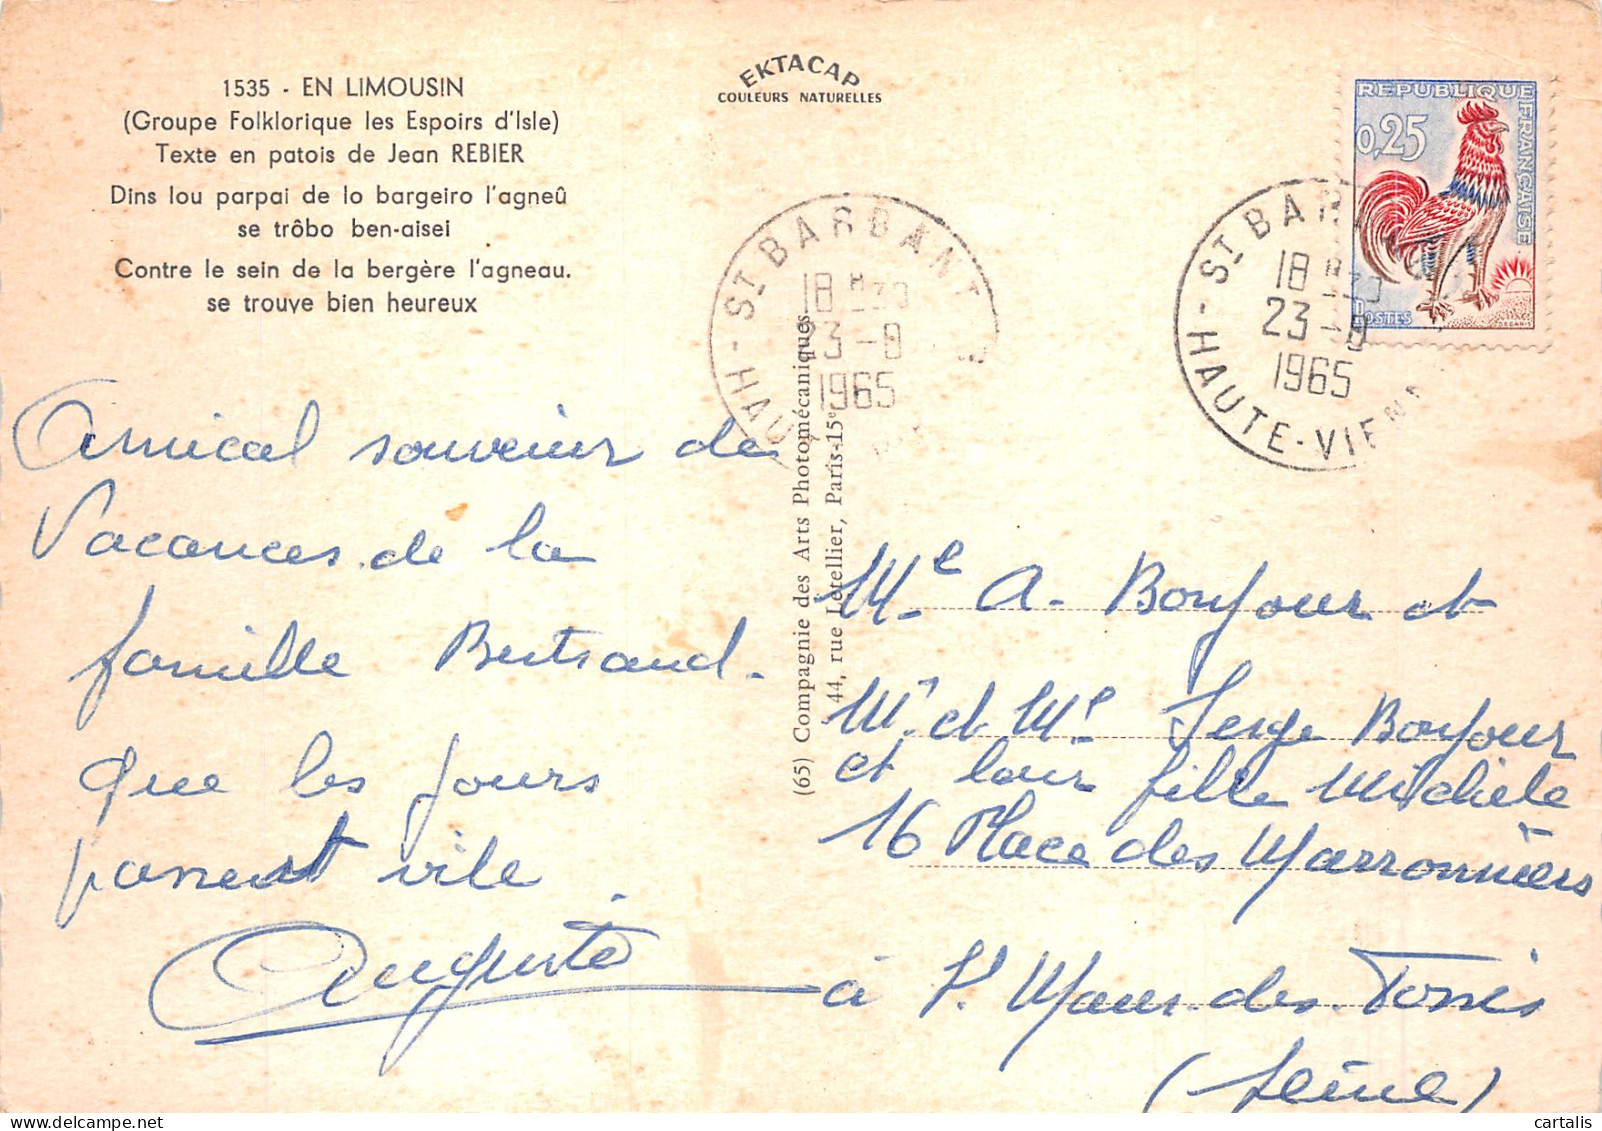 1535 - EN LIMOUSIN
(Groupe Folklorique les Espoirs d'Isle)
Texte en patois de Jean REBIER
Dins lou parpai de lo bargeiro l'agneû
se trôbo ben-aisei
Contre le sein de la bergère l'agneau.
se trouve bien heureux
EKTACAP
COULEURS NATURELLES
REPUBLIQUE FRANÇAISE
0,25
POSTES
DECARIS
ST BARBANT
18 H 30
23 - 8
1965
HAUTE-VIENNE
ST BARBANT
18 H 30
23 - 8
1965
HAUTE-VIENNE
Amical souvenir de
Vacances de la
famille Bertrand.
que les jours
passent vite.
Auguste
(65) Compagnie des Arts Photomécaniques
44, rue Letellier, Paris-15e
Me A. Bonjour et
Mr et Me Serge Bonjour
et leur fille Michèle
16 Place des Marronniers
à St Maur-des-Fossés
(Seine)
cartalis
www.delcampe.net